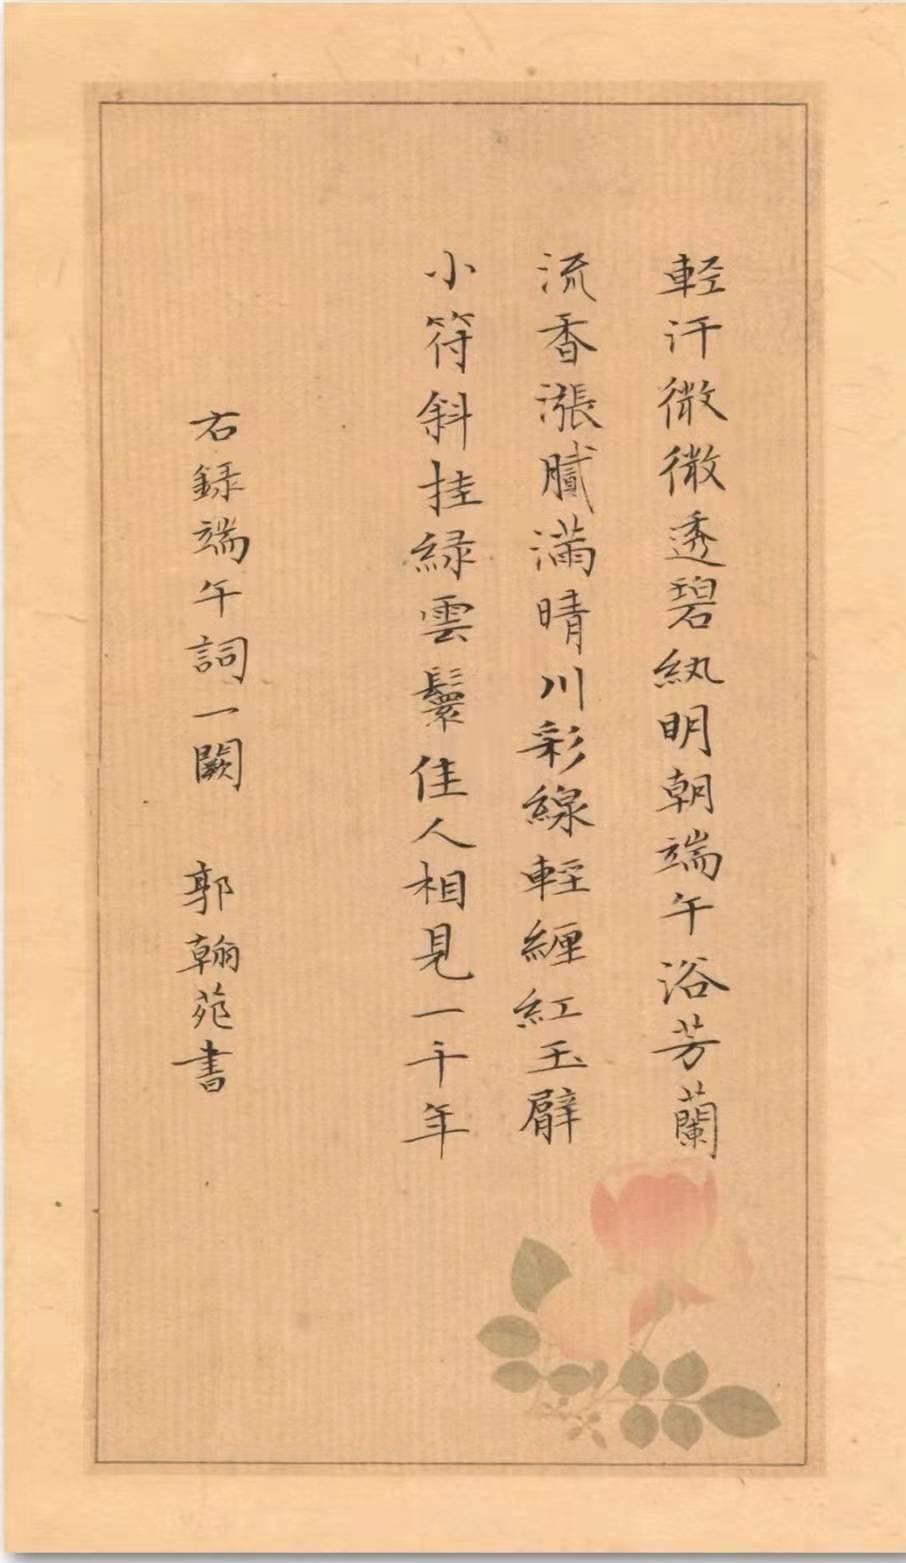 軽汗微微透碧紈明朝端午浴芳蘭
流香漲膩滿晴川彩線輕纏紅玉臂
小符斜挂緑雲鬟佳人相見一千年
右録端午詞一闕 郭翰苑書